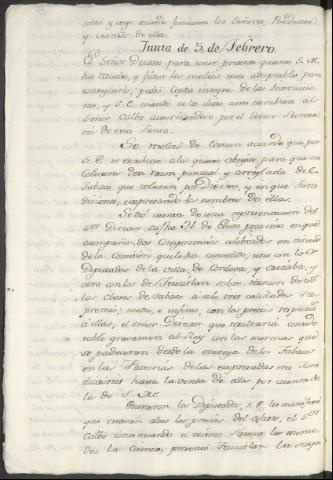 solvió y cuya acuerdo firmaron los Señores, Presidente
y demás de ella.
Junta de 3 de Febrero.
El Señor Decano para tener presente quanto S. M.
ha resuelto, y fixar los medios mas adaptables para
conseguirlo, pidió Copia integra de las Instruccio-
nes, y S. E. mandó se la diese como tambien al
Señor Calbo autorizandolas por el Señor Secreta-
rio de esta Junta.
Se resolvió de comun acuerdo que por
S. E. se escribiese a los quatro para que sus
Colectores den razon puntual y arreglada de el
Tabaco que colectan por Diezmo, y en que Juris-
dicciones, expresando los nombres de ellas.
Se dió cuenta de una representacion del
Sor Director su fha 31. de Enero proximo en que
acompaña dos Compromisos celebrados en virtud
de la Comision que le ha conferido, uno con los
Diputados de la villa de Cordova, y
otro con los de Teusitlan sobre reunion de todas
las Clases de Tabaco á solo tres calidades su-
premo, medio, e infimo, con los precios respectivos
á ellas, el señor Director que resultaria conside-
rable gravamen al Rey con las mermas que
se padeceran desde la entrega de los Tabacos
en las Factorias de las expresadas Juris-
dicciones hasta la venta de ellos por cuenta
de S. M.
los Diputados, S. E. les manifestó
que eran altos los precios del ajuste, el Sor
Calbo continuando el mismo
la presentó Teusitlan la